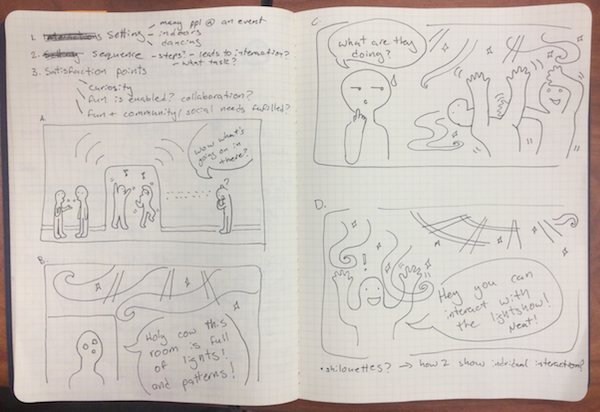 1. Setting - many ppl @ an event
- indoors
- dancing
2. Sequence - steps? - leads to interaction?
- what task?
3. Satisfaction points
curiosity
fun is enabled? collaboration?
fun + community/social needs fulfilled?
A.
Wow what's
going on in
there?
?
B.
Holy cow this
room is full
of lights!
and patterns!
C.
What are they
doing?
D.
!
Hey you can
interact with
the lightshow!
Neat!
• shilouettes? → how 2 show individual interaction?